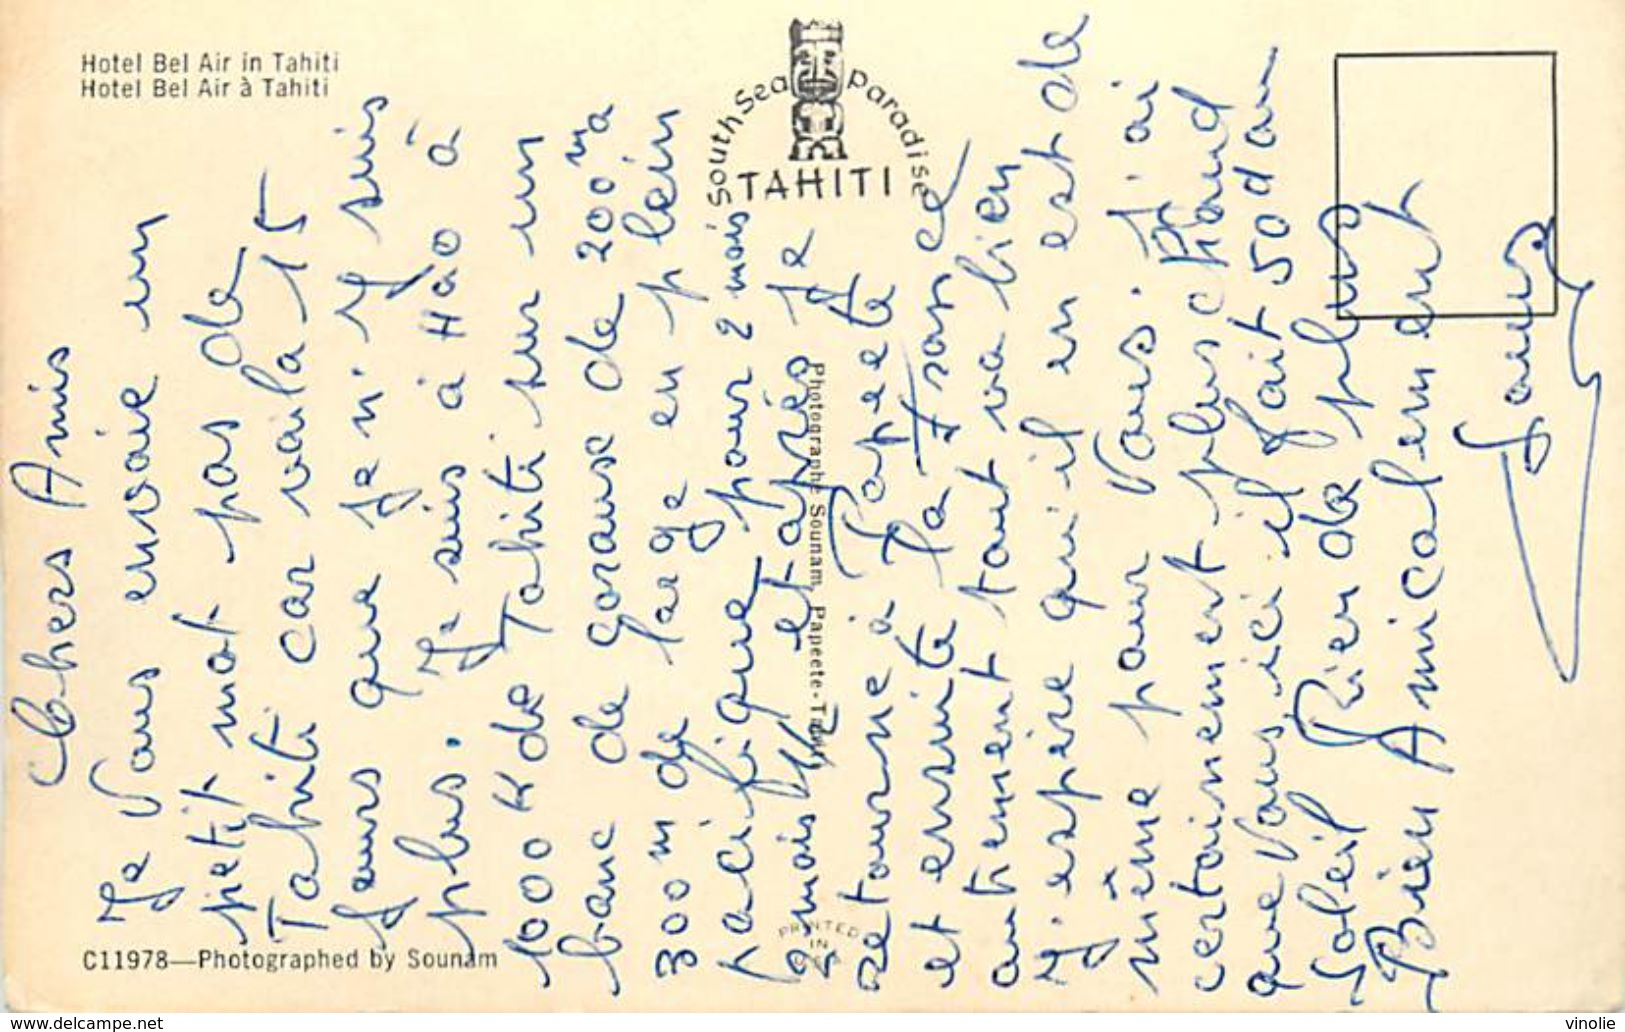 Hotel Bel Air in Tahiti
Hotel Bel Air à Tahiti
South Sea Paradise
TAHITI
Chers Amis
Je Vous envoie un
petit mot pas de
Tahiti car voila 15
Jours que Je n'y suis
plus. Je suis à Hao à
1000 K de Tahiti sur un
banc de 200 m à
300 m de large en plein
Pacifique pour 2 mois
2 mois ½ et après Je
retourne à Papeete
et ensuite la France
autrement tout va bien
J'espère qu'il en est de
même pour Vous. J'ai
certainement plus chaud
que Vous ici il fait 50 dan
Soleil Rien de plus
Bien Amicalement
Photographe Sounam, Papeete-Tahiti
PRINTED
IN
C11978—Photographed by Sounam
www.delcampe.net
vinolie